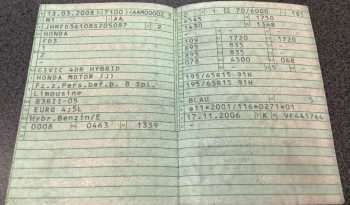 13.03.2008 7100 AAM00002 3
M1 AA
JHMFD36108S205087 2
HONDA
FD3
7
CIVIC 4DR HYBRID
HONDA MOTOR (J)
Fz.z.Pers.bef.b. 8 Spl.
Limousine
83RII-05
EURO 4;5L
Hybr.Benzin/E
0008 0463 1339
1 70/6000 185
4545 1750
1430 1368
109 1720 1720
895 835
895 835
078 4500 068
195/65R15 91H
195/65R15 91H
BLAU 5
e11*2001/116*0271*01
17.11.2006 K VF441764